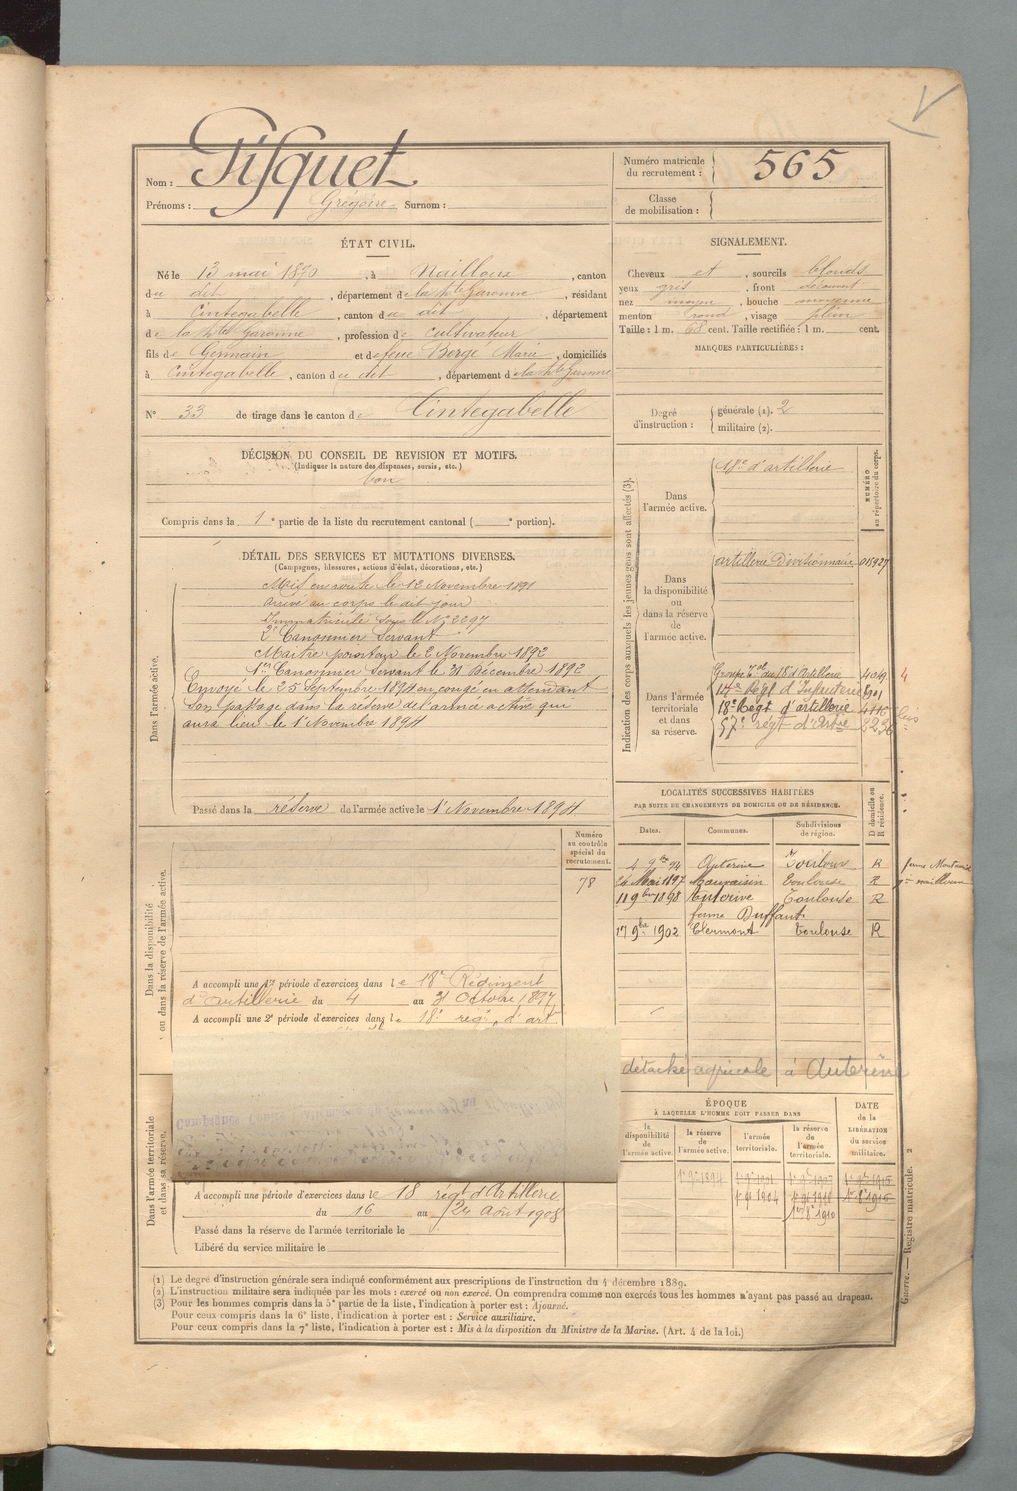 Nom : Pisquet
Prénoms : Grégoire Surnom :
Numéro matricule du recrutement : 565
Classe de mobilisation :
ÉTAT CIVIL.
Né le 13 mai 1870, à Nailloux, canton
du dit, département de la hte Garonne, résidant
à Cintegabelle, canton du dit, département
de la hte Garonne, profession de cultivateur
fils de Germain et de feue Borge Marie, domiciliés
à Cintegabelle, canton du dit, département de la hte Garonne
N° 33 de tirage dans le canton de Cintegabelle
SIGNALEMENT.
Cheveux et, sourcils blonds
yeux gris, front découvert
nez moyen, bouche moyenne
menton rond, visage plein
Taille : 1 m. 68 cent. Taille rectifiée : 1 m. cent.
MARQUES PARTICULIÈRES :
Degré d'instruction : générale (1). 2
militaire (2).
DÉCISION DU CONSEIL DE REVISION ET MOTIFS.
(Indiquer la nature des dispenses, sursis, etc.)
bon
Compris dans la 1e partie de la liste du recrutement cantonal ( e portion).
DÉTAIL DES SERVICES ET MUTATIONS DIVERSES.
(Campagnes, blessures, actions d'éclat, décorations, etc.)
Dans l'armée active.
Mis en route le 12 Novembre 1891
arrivé au corps le dit jour
Immatriculé sous le N° 2297
2e Canonnier Servant
Maître pointeur le 2 Novembre 1892
1er Canonnier Servant le 31 Décembre 1892
Envoyé le 25 Septembre 1894 en congé en attendant
son passage dans la réserve de l'armée active qui
aura lieu le 1er Novembre 1894
Passé dans la réserve de l'armée active le 1er Novembre 1894
Indication des corps auxquels les jeunes gens sont affectés (3).
NUMÉRO au répertoire du corps.
Dans l'armée active.
18e d'artillerie
Dans la disponibilité ou dans la réserve de l'armée active.
artillerie Divisionnaire 015927
Dans l'armée territoriale et dans sa réserve.
Groupe Tal du 18e d'Artillerie 4049
Régt d'Infanterie
18e Régt d'artillerie
57e régt d'Artie
LOCALITÉS SUCCESSIVES HABITÉES
PAR SUITE DE CHANGEMENTS DE DOMICILE OU DE RÉSIDENCE.
D domicile ou R résidence.
Dates. Communes. Subdivisions de région.
4 9bre 94 Auterive Toulouse R
26 Mai 1897 Mauvaisin Toulouse R
11 9bre 1898 Auterive Toulouse R
ferme Duffaut
17 9bre 1902 Clermont Toulouse R
détaché agricole à Auterive
Numéro au contrôle spécial du recrutement.
78
Dans la disponibilité ou dans la réserve de l'armée active.
A accompli une 1re période d'exercices dans le 18e Régiment
d'artillerie du 4 au 31 Octobre 1897
A accompli une 2e période d'exercices dans le 18e régt d'art
Dans l'armée territoriale et dans sa réserve.
Campagnes Contre l'Allemagne du
A accompli une période d'exercices dans le 18 régt d'Artillerie
du 16 au 24 Août 1908
Passé dans la réserve de l'armée territoriale le
Libéré du service militaire le
ÉPOQUE
À LAQUELLE L'HOMME DOIT PASSER DANS
la disponibilité de l'armée active.
la réserve de l'armée active.
l'armée territoriale.
la réserve de l'armée territoriale.
DATE de la LIBÉRATION du service militaire.
1er 9bre 1894
(1) Le degré d'instruction générale sera indiqué conformément aux prescriptions de l'instruction du 4 décembre 1889.
(2) L'instruction militaire sera indiquée par les mots : exercé ou non exercé. On comprendra comme non exercés tous les hommes n'ayant pas passé au drapeau.
(3) Pour les hommes compris dans la 5e partie de la liste, l'indication à porter est : Ajourné.
Pour ceux compris dans la 6e liste, l'indication à porter est : Service auxiliaire.
Pour ceux compris dans la 7e liste, l'indication à porter est : Mis à la disposition du Ministre de la Marine. (Art. 4 de la loi.)
Guerre. — Registre matricule. 2